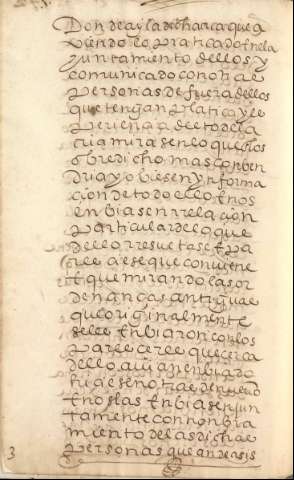 Don de aya de charca que a
viendo lo platicado en la
Juntamento dellos y
comunicado con otras
personas de fuera dellos
que tengan platica y es
periençia de to de la
cria mirasen lo que los
sobredicho mas conben
dria y obiesen ynforma
çion de todo ello e nos
enbiasen rrelaçion
particular de lo que
dello rresultase e pa
resçiese que conviene
e que mirando las or
denanças antiguas
que originalmente
se les enbiaron con los
paresçeres que çerca
dello avian enbiado
hiziesen otras de nuevo
e nos las enbiasen jun
tamente con nonbra
miento de las dichas
personas que an de asis
3